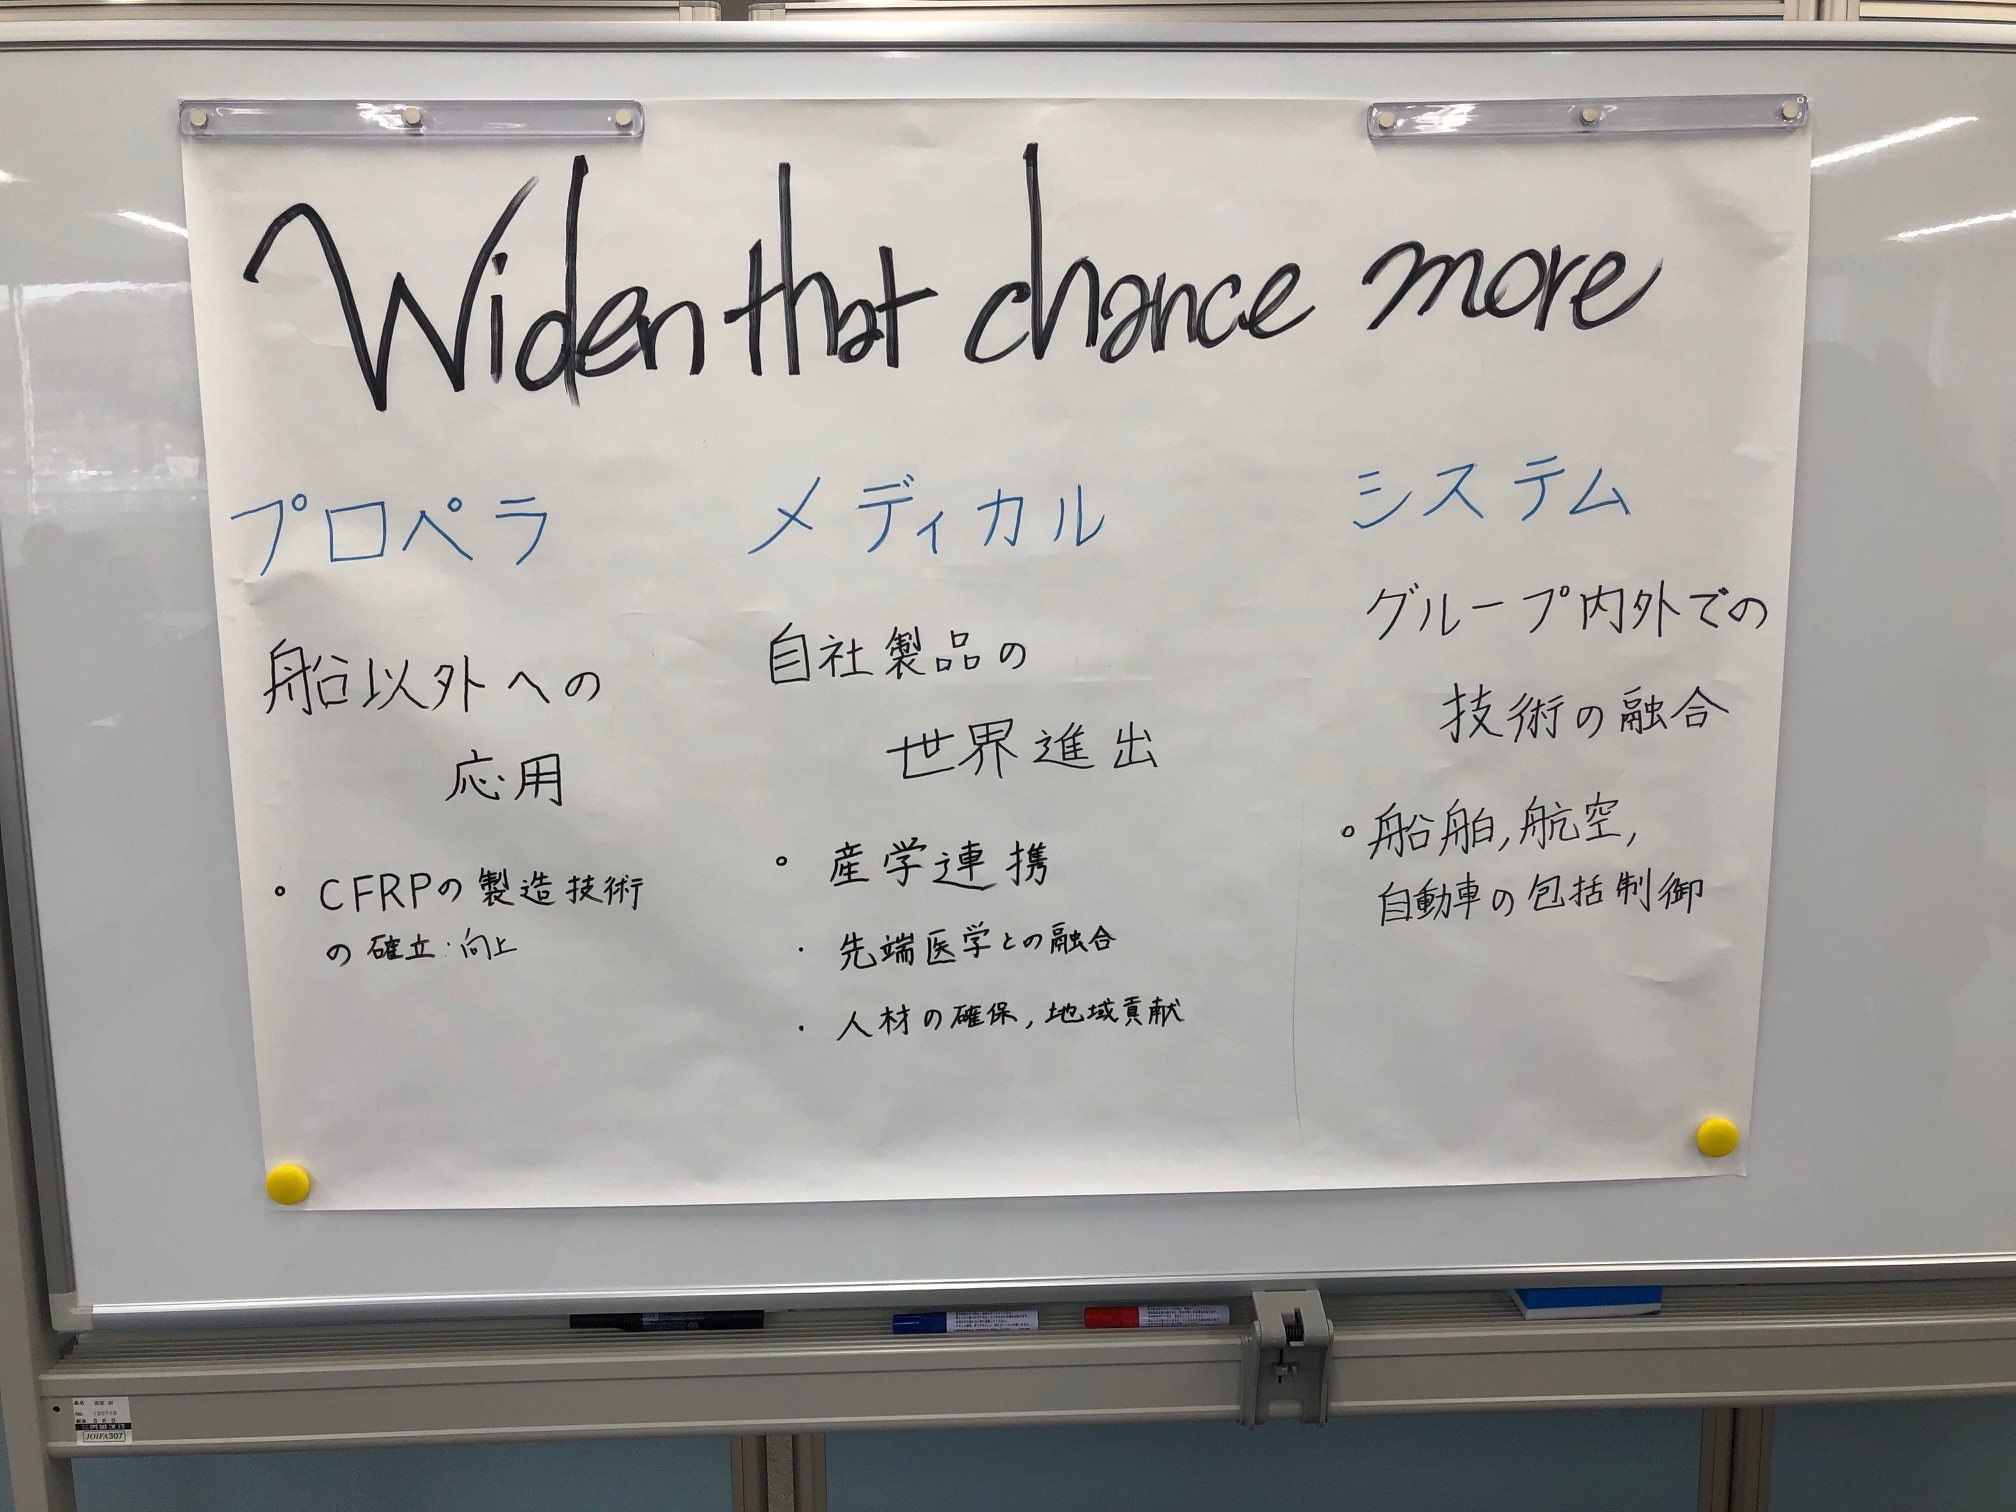 Widen that chance more
プロペラ
船以外への
応用
◦ CFRPの製造技術
の確立・向上
メディカル
自社製品の
世界進出
◦ 産学連携
・先端医学との融合
・人材の確保, 地域貢献
システム
グループ内外での
技術の融合
◦ 船舶, 航空,
自動車の包括制御
JOIFA307